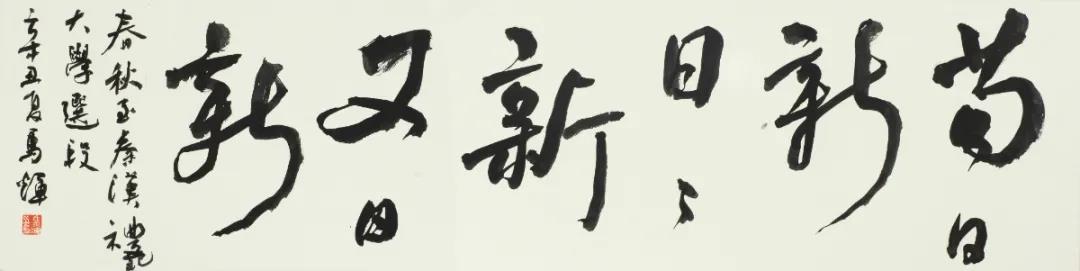 苟日
新
日々
新
又日
新
春秋至秦漢禮
大學選段
辛丑夏馬輝